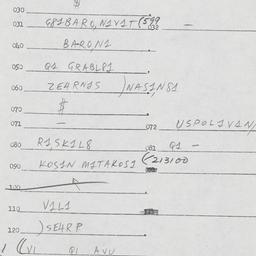 030 $
031 G81BARO,N1V1T(599 032 —
040 BARO,N1
050 G1 GRABL81
060 ZE4RN1S )NAS1N81
070 $
071 — 072 USPOL1V1N/
080 R1,SK1L8 081 G1 —
090 KOS1N M1TAKOS1 (213100
100
110 V1L1
120 )SE4RP
((V1 G1 AVU